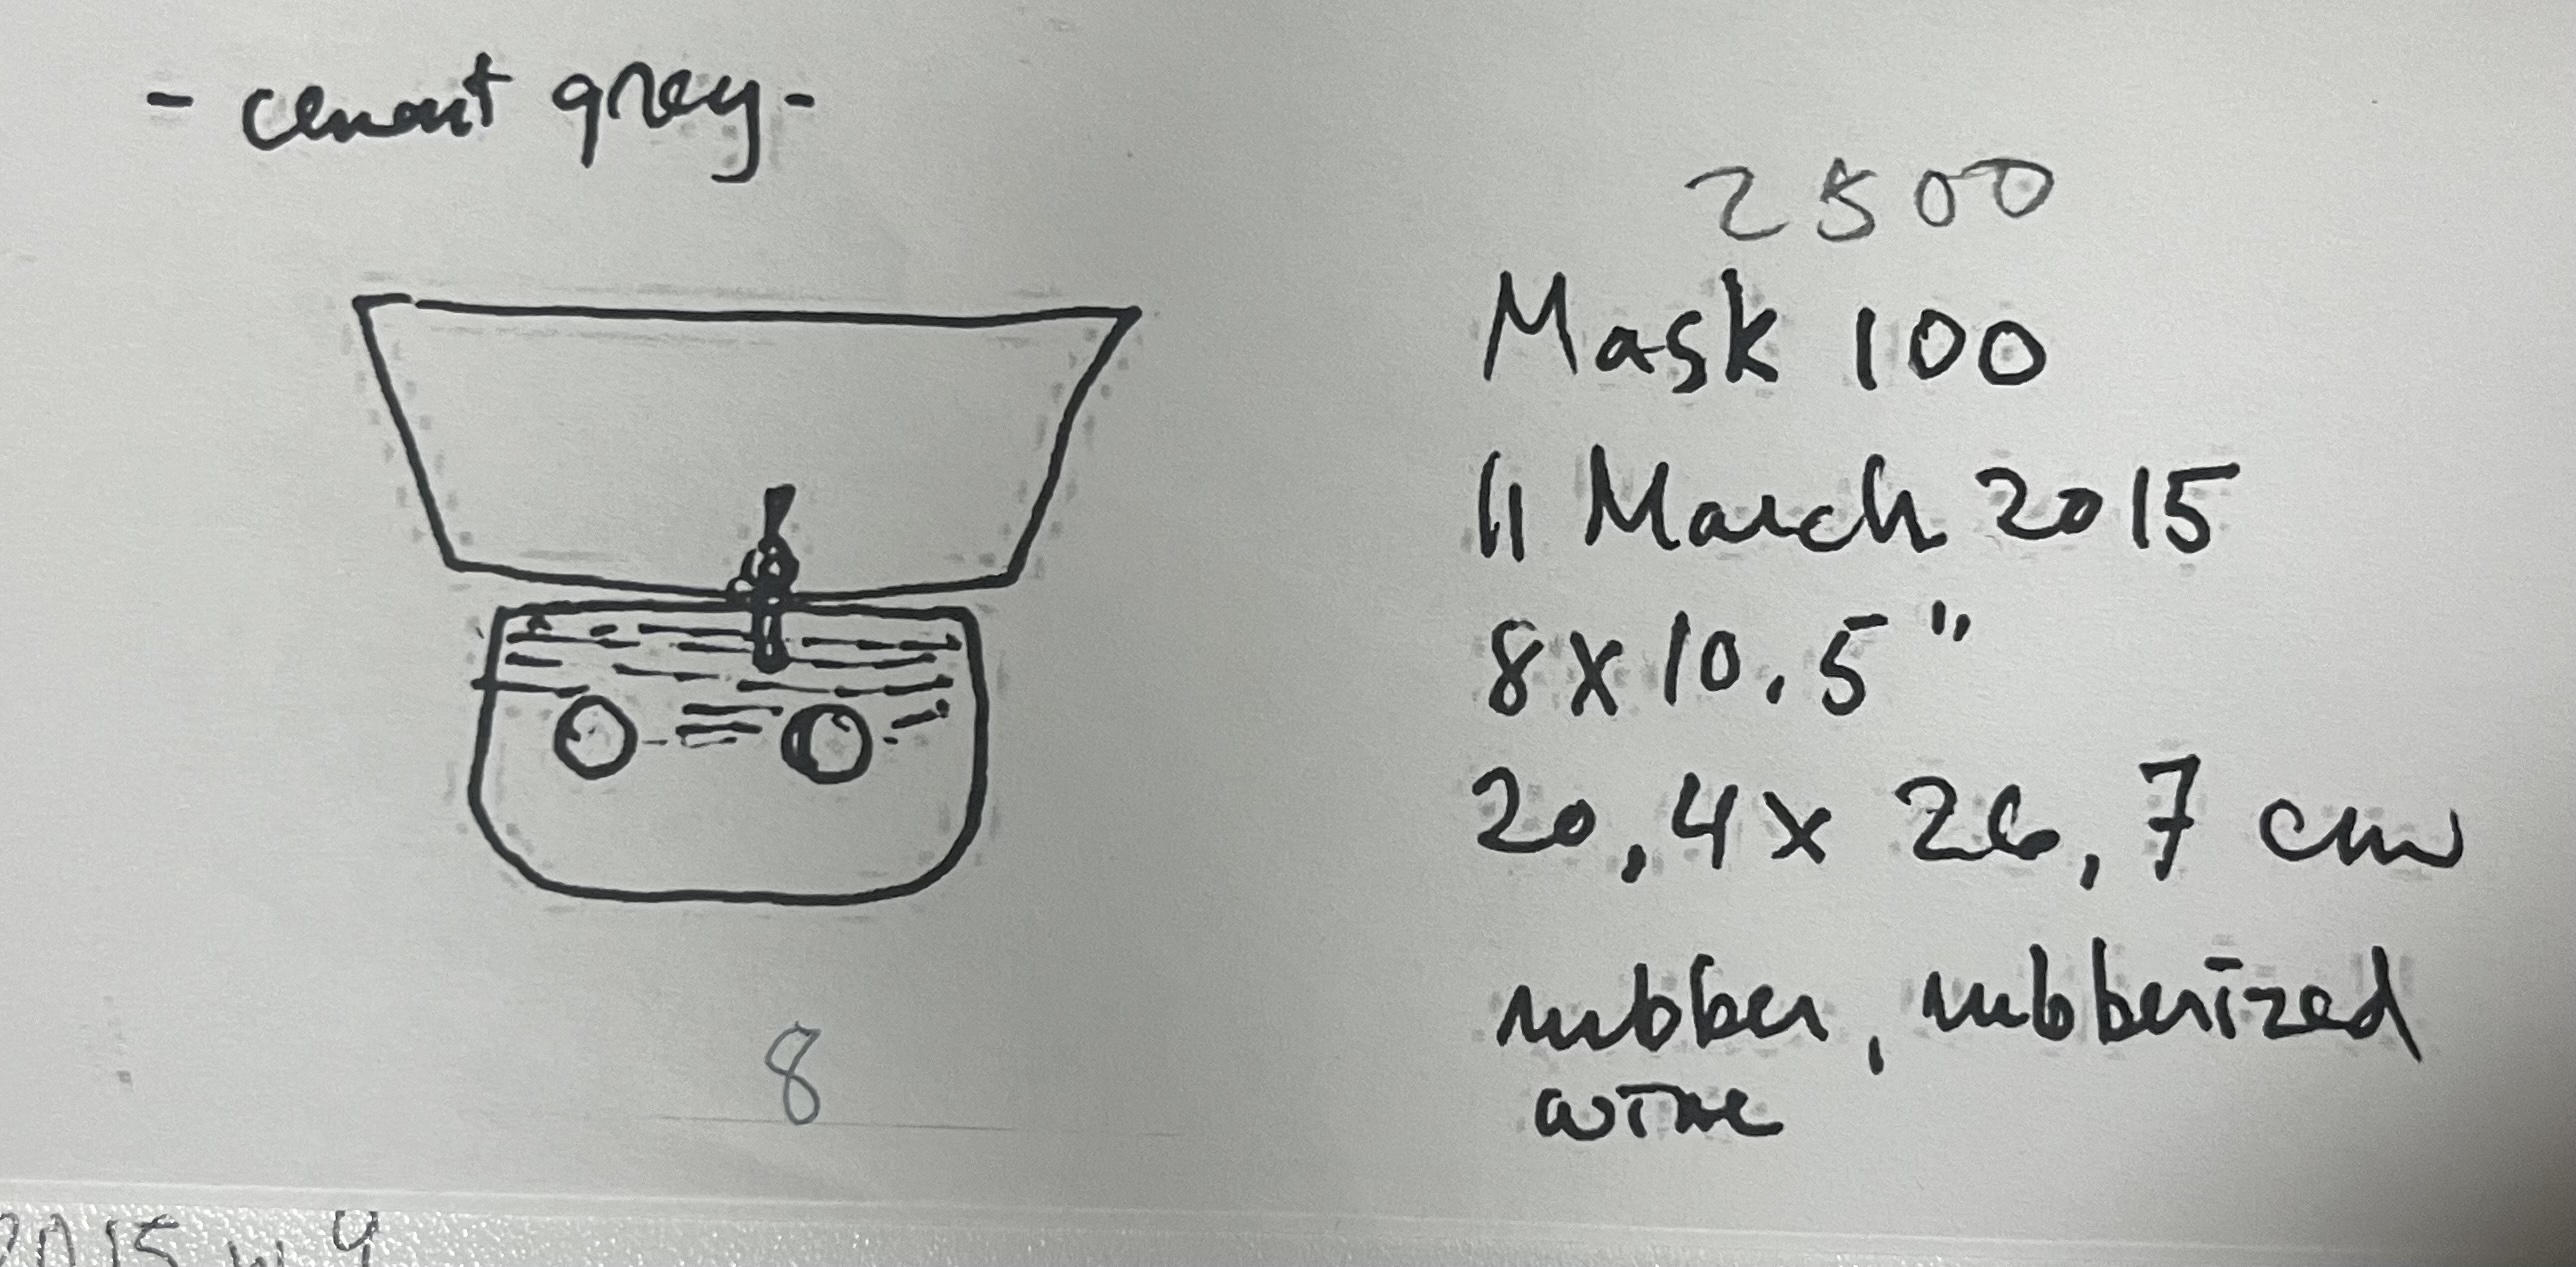 - cement grey -
2500
Mask 100
11 March 2015
8x10.5"
20,4x 26,7 cm
rubber, rubberized
wire
8
2015